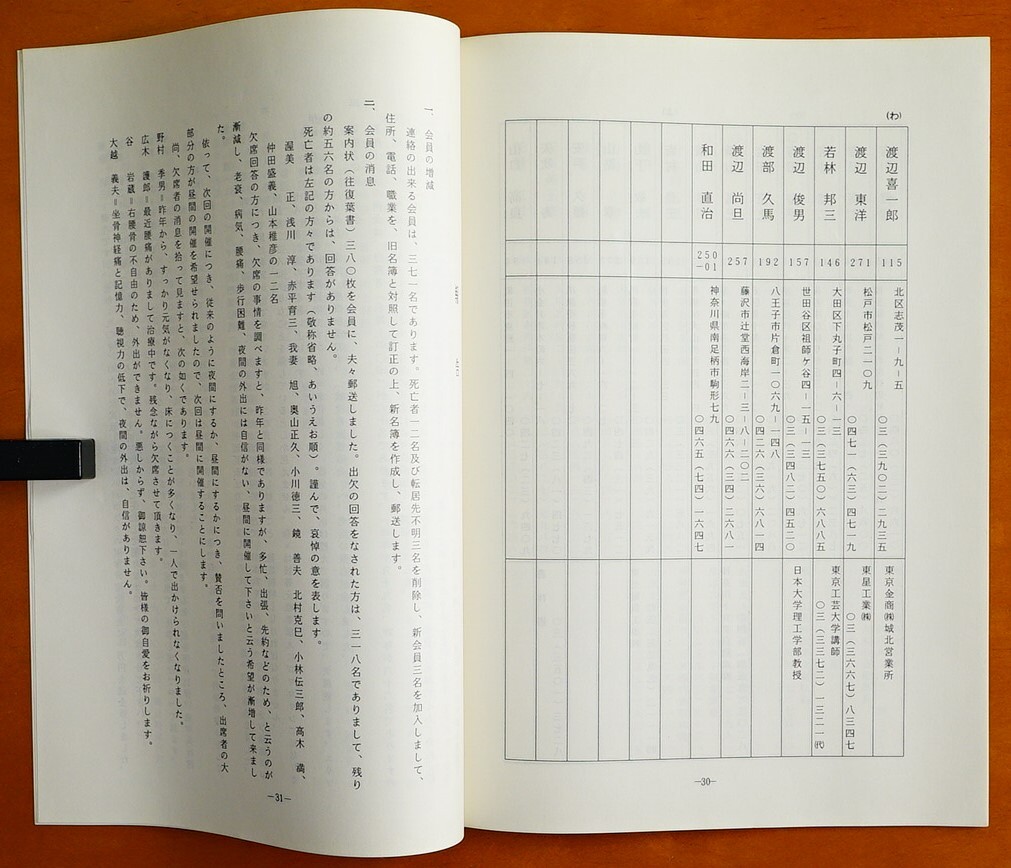 (わ)
渡辺喜一郎
115
北区志茂一ー九ー五
〇三(三九〇二)二九三五
東京金商㈱城北営業所
渡辺 東洋
271
松戸市松戸二一〇九
〇四七一(六三)四七一九
東星工業㈱
〇三(三六六七)八三四七
若林 邦三
146
大田区下丸子町四ー六ー一三
〇三(三七五〇)六八八五
東京工芸大学講師
〇三(三三七二)一三二一㈹
渡辺 俊男
157
世田谷区祖師ケ谷四ー一五ー一三
〇三(三四八二)四五二〇
日本大学理工学部教授
渡部 久馬
192
八王子市片倉町一〇六九ー一四八
〇四二六(三六)六八一四
渡辺 尚旦
257
藤沢市辻堂西海岸二ー三ー八ー二〇二
〇四六六(三四)二六八一
和田 直治
250
-01
神奈川県南足柄市駒形七九
〇四六五(七四)一六四七
—30—
一、会員の増減
連絡の出来る会員は、三七一名であります。死亡者一二名及び転居先不明三名を削除し、新会員三名を加入しまして、
住所、電話、職業を、旧名簿と対照して訂正の上、新名簿を作成し、郵送します。
二、会員の消息
案内状(往復葉書)三八〇枚を会員に、夫々郵送しました。出欠の回答をなされた方は、三一八名でありまして、残り
の約五六名の方からは、回答がありません。
死亡者は左記の方々であります(敬称省略、あいうえお順)。謹んで、哀悼の意を表します。
渥美 正、浅川 淳、赤平育三、我妻 旭、奥山正久、小川徳三、鏡 善夫 北村克巳、小林伝三郎、高木 満、
仲田盛義、山本稚彦の一二名
欠席回答の方につき、欠席の事情を調べますと、昨年と同様でありますが、多忙、出張、先約などのため、と云うのが
漸減し、老衰、病気、腰痛、歩行困難、夜間の外出には自信がない、昼間に開催して下さいと云う希望が漸増して来まし
た。
依って、次回の開催につき、従来のように夜間にするか、昼間にするかにつき、賛否を問いましたところ、出席者の大
部分の方が昼間の開催を希望せられましたので、次回は昼間に開催することにします。
尚、欠席者の消息を拾って見ますと、次の如くであります。
野村 季男＝昨年から、すっかり元気がなくなり、床につくことが多くなり、一人で出かけられなくなりました。
広木 護郎＝最近腰痛がありまして治療中です。残念ながら欠席させて頂きます。
谷 岩蔵＝右腰骨の不自由のため、外出ができません。悪しからず、御諒恕下さい。皆様の御自愛をお祈りします。
大越 義夫＝坐骨神経痛と記憶力、聴視力の低下で、夜間の外出は、自信がありません。
—31—